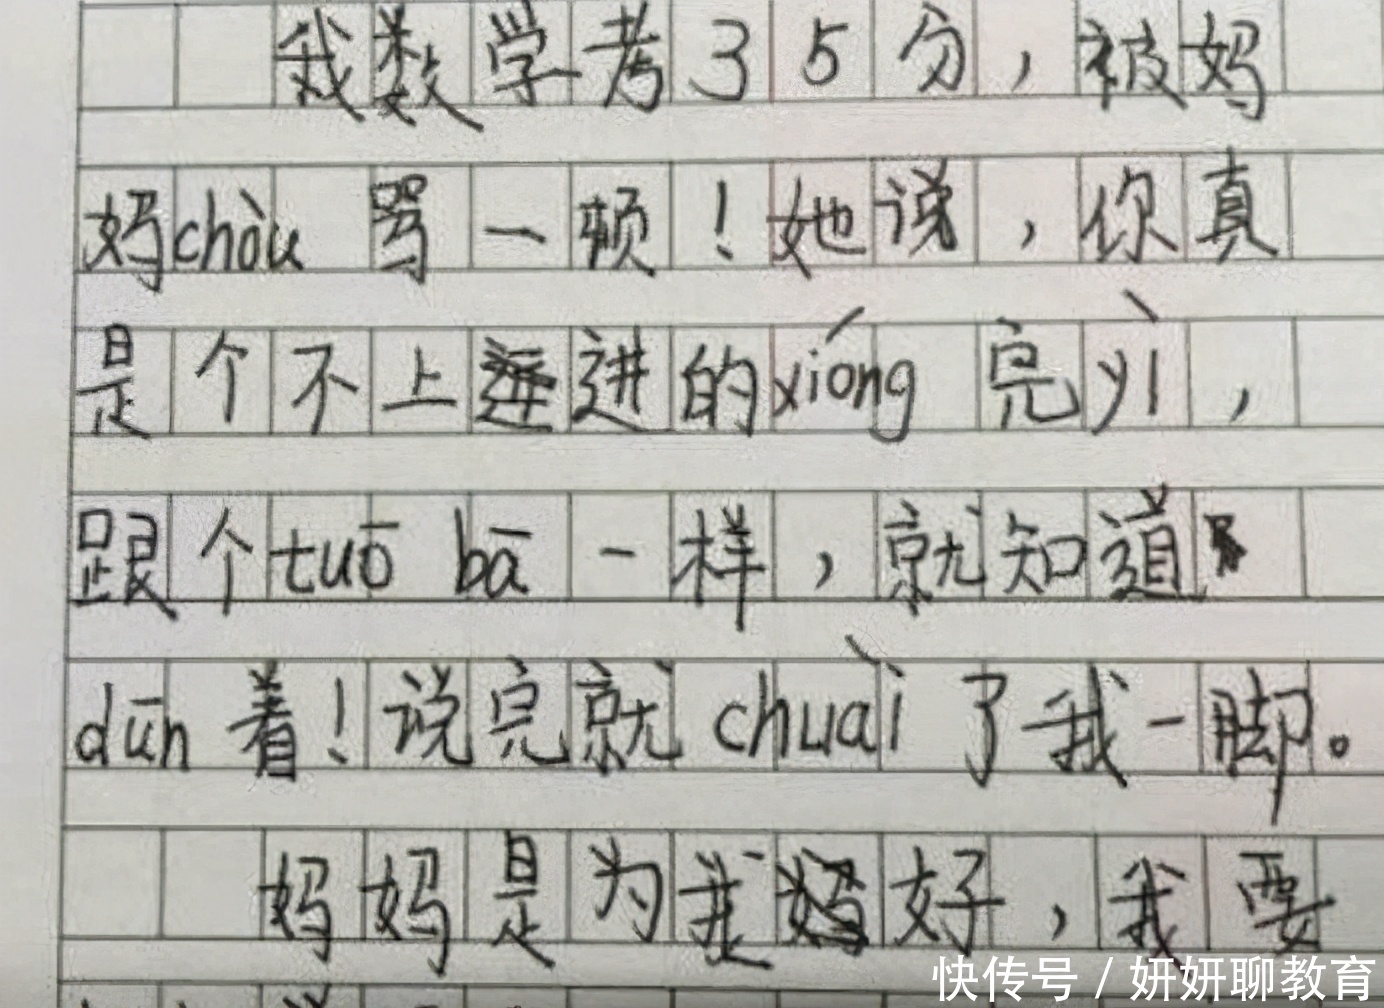 我数学考35分，被妈
妈chòu 骂一顿！她说，你真
是个不上进的xióng 完yì，
跟个tuō bā 一样，就知道
dūn 着！说完就 chuài 了我一脚。
妈妈是为我好，我要
快传号 / 妍妍聊教育